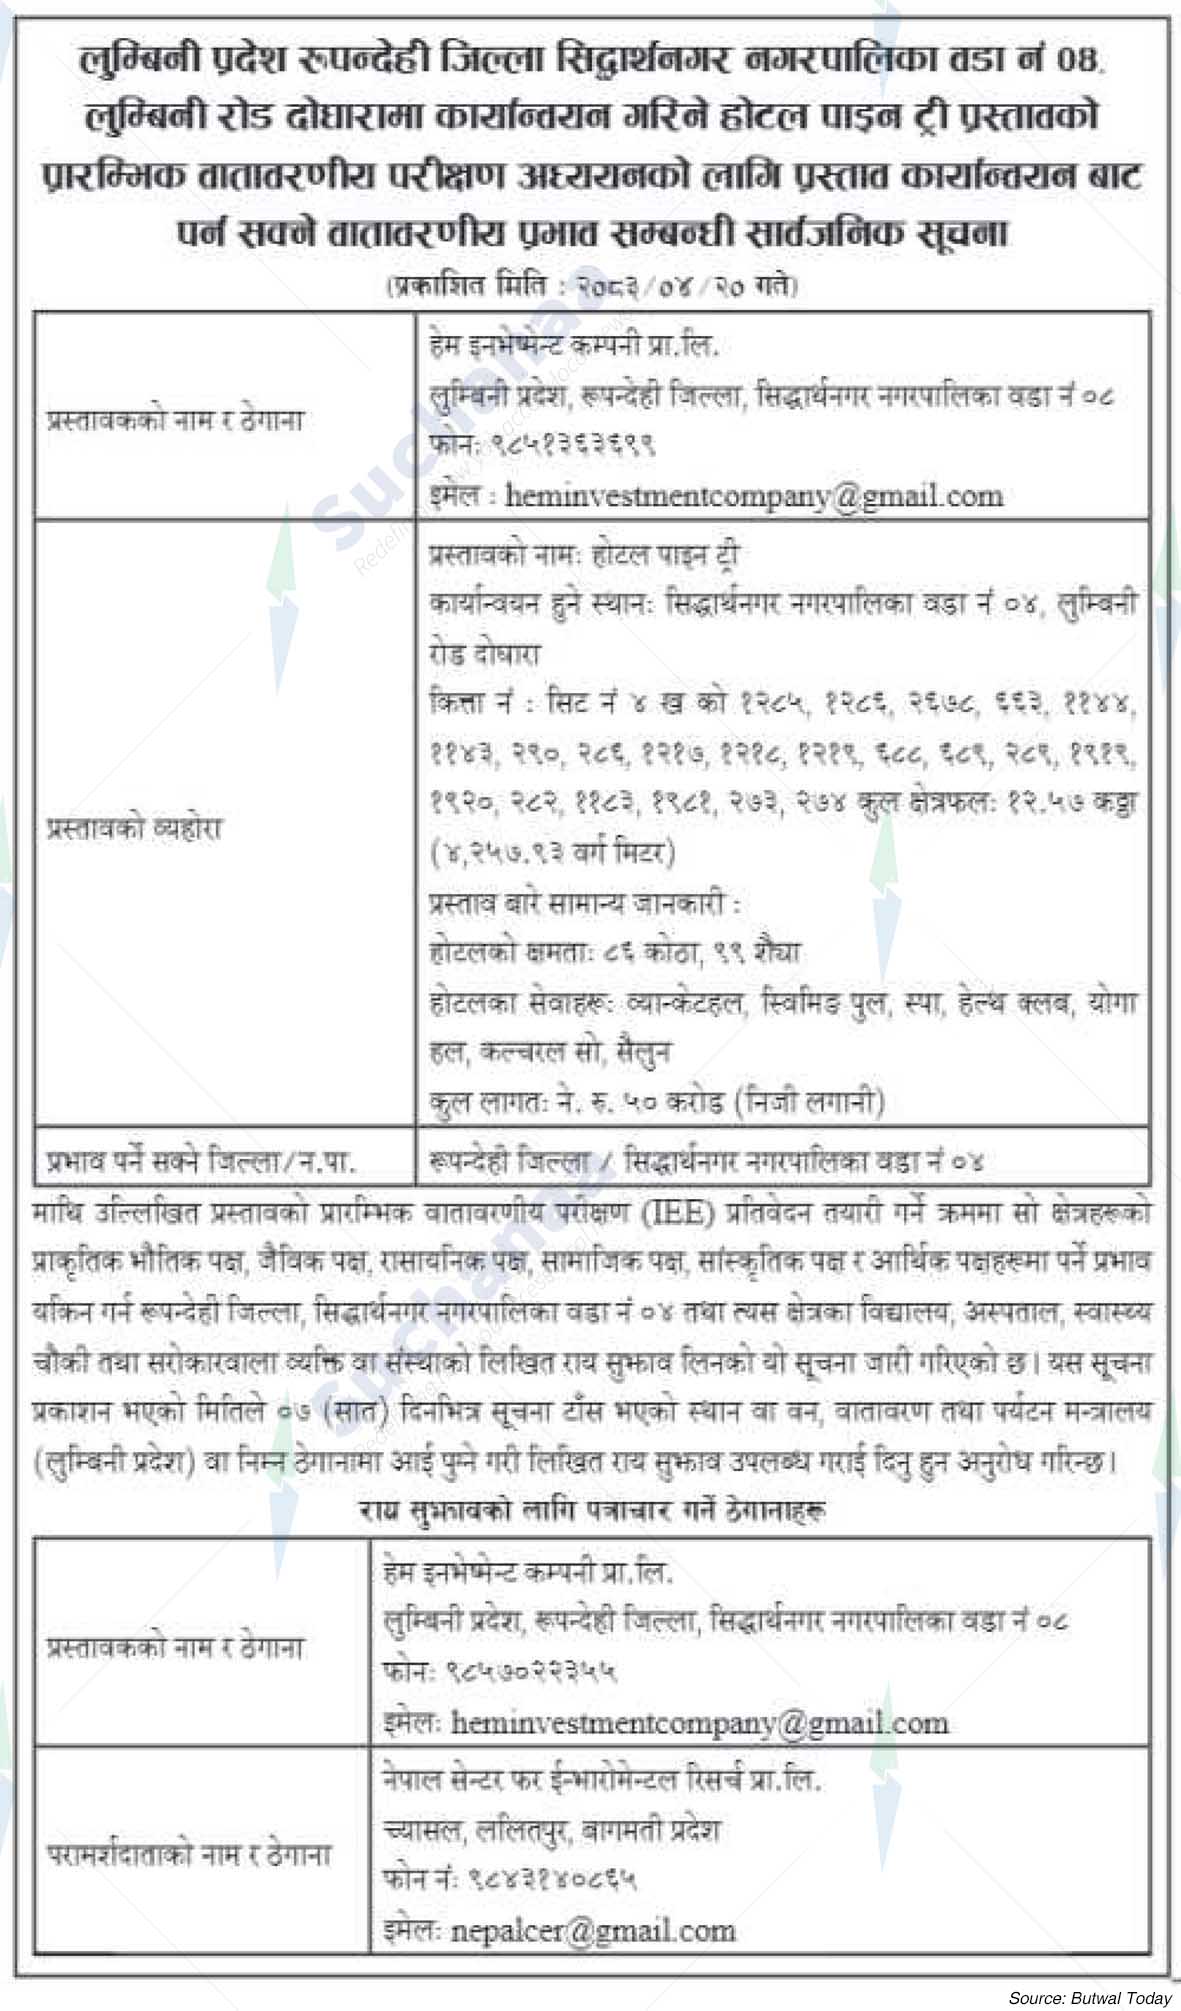 लुम्बिनी प्रदेश रुपन्देही जिल्ला सिद्धार्थनगर नगरपालिका वडा नं ०४.
लुम्बिनी रोड दोघारामा कार्यान्वयन गरिने होटल पाइन ट्री प्रस्तावको
प्रारम्भिक वातावरणीय परीक्षण अध्ययनको लागि प्रस्ताव कार्यान्वयन बाट
पर्न सक्ने वातावरणीय प्रभाव सम्बन्धी सार्वजनिक सूचना
(प्रकाशित मिति : २०८३/०४/२० गते)
प्रस्तावकको नाम र ठेगाना
हेम इनभेष्मेन्ट कम्पनी प्रा.लि.
लुम्बिनी प्रदेश, रूपन्देही जिल्ला, सिद्धार्थनगर नगरपालिका वडा नं ०८
फोनः ९८५१३६३६९९
इमेल : heminvestmentcompany@gmail.com
प्रस्तावको व्यहोरा
प्रस्तावको नामः होटल पाइन ट्री
कार्यान्वयन हुने स्थानः सिद्धार्थनगर नगरपालिका वडा नं ०४, लुम्बिनी
रोड दोघारा
कित्ता नं : सिट नं ४ ख को १२८५, १२८६, २६७८, ६६३, ११४४,
११४३, २९०, २८६, १२१७, १२१८, १२१९, ६८८, ६८९, २८९, १९१९,
१९२०, २८२, ११८३, १९८१, २७३, २७४ कुल क्षेत्रफलः १२.५७ कठ्ठा
(४,२५७.९३ वर्ग मिटर)
प्रस्ताव बारे सामान्य जानकारी :
होटलको क्षमताः ८६ कोठा, ९९ शैय्या
होटलका सेवाहरूः व्यान्केटहल, स्विमिङ पुल, स्पा, हेल्थ क्लब, योगा
हल, कल्चरल सो, सैलुन
कुल लागतः ने. रु. ५० करोड (निजी लगानी)
प्रभाव पर्ने सक्ने जिल्ला/न.पा.
रूपन्देही जिल्ला / सिद्धार्थनगर नगरपालिका वडा नं ०४
माथि उल्लिखित प्रस्तावको प्रारम्भिक वातावरणीय परीक्षण (IEE) प्रतिवेदन तयारी गर्ने क्रममा सो क्षेत्रहरूको
प्राकृतिक भौतिक पक्ष, जैविक पक्ष, रासायनिक पक्ष, सामाजिक पक्ष, सांस्कृतिक पक्ष र आर्थिक पक्षहरूमा पर्ने प्रभाव
यकिन गर्न रूपन्देही जिल्ला, सिद्धार्थनगर नगरपालिका वडा नं ०४ तथा त्यस क्षेत्रका विद्यालय, अस्पताल, स्वास्थ्य
चौकी तथा सरोकारवाला व्यक्ति वा संस्थाको लिखित राय सुझाव लिनको यो सूचना जारी गरिएको छ। यस सूचना
प्रकाशन भएको मितिले ०७ (सात) दिनभित्र सूचना टाँस भएको स्थान वा वन, वातावरण तथा पर्यटन मन्त्रालय
(लुम्बिनी प्रदेश) वा निम्न ठेगानामा आई पुग्ने गरी लिखित राय सुझाव उपलब्ध गराई दिनु हुन अनुरोध गरिन्छ।
राय सुझावको लागि पत्राचार गर्ने ठेगानाहरू
प्रस्तावकको नाम र ठेगाना
हेम इनभेष्मेन्ट कम्पनी प्रा.लि.
लुम्बिनी प्रदेश, रूपन्देही जिल्ला, सिद्धार्थनगर नगरपालिका वडा नं ०८
फोनः ९८५७०२२३५५
इमेलः heminvestmentcompany@gmail.com
परामर्शदाताको नाम र ठेगाना
नेपाल सेन्टर फर ईन्भारोमेन्टल रिसर्च प्रा.लि.
च्यासल, ललितपुर, बागमती प्रदेश
फोन नंः ९८४३१४०८६५
इमेलः nepalcer@gmail.com
Suchanaa
Suchanaa
Source: Butwal Today